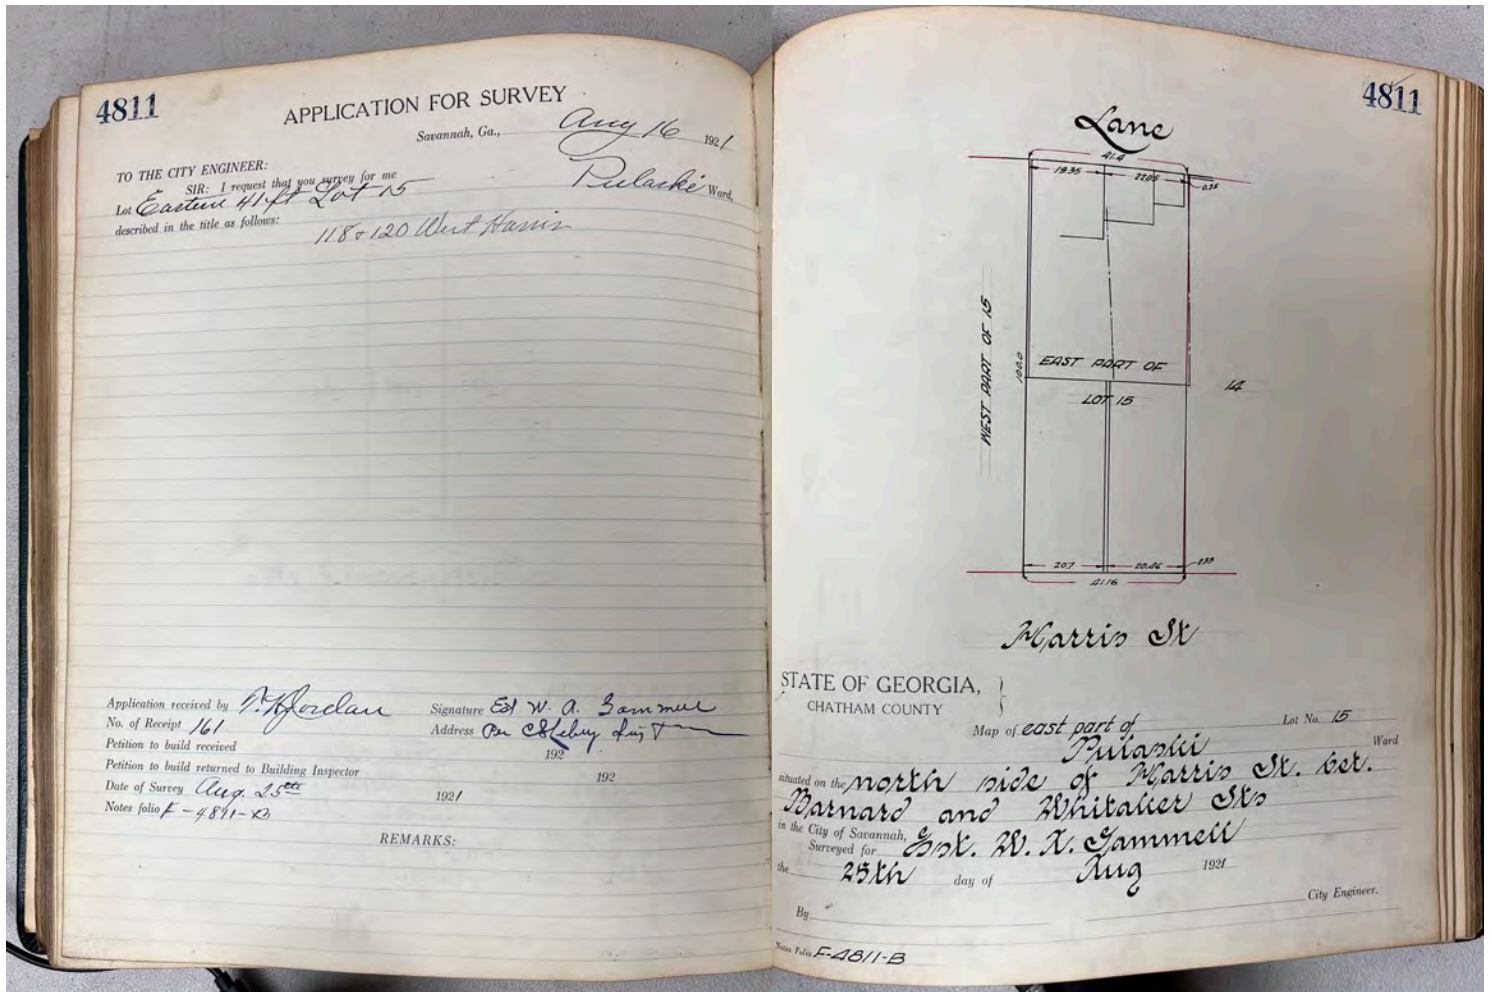 4811
APPLICATION FOR SURVEY
Savannah, Ga., Aug 16 1921
TO THE CITY ENGINEER:
SIR: I request that you survey for me Pulaski Ward,
Lot Eastern 41 ft Lot 15
described in the title as follows:
118 & 120 West Harris
Application received by Jordan
No. of Receipt 161
Petition to build received 192
Petition to build returned to Building Inspector 192
Date of Survey Aug. 25th 1921
Notes folio F-4891-B
Signature Est W. A. Gammell
Address Per
REMARKS:
4811
Lane
41.4
19.35 22.05 0.25
WEST PART OF 15
100.0
EAST PART OF
LOT 15
14
20.7 20.46
41.16
Harris St
STATE OF GEORGIA,
CHATHAM COUNTY
Map of east part of Lot No. 15
Pulaski Ward
situated on the north side of Harris St. bet.
Barnard and Whitaker Sts
in the City of Savannah,
Surveyed for Est. W. A. Gammell
the 25th day of Aug 1921
City Engineer.
By
Notes Folio F-4811-B